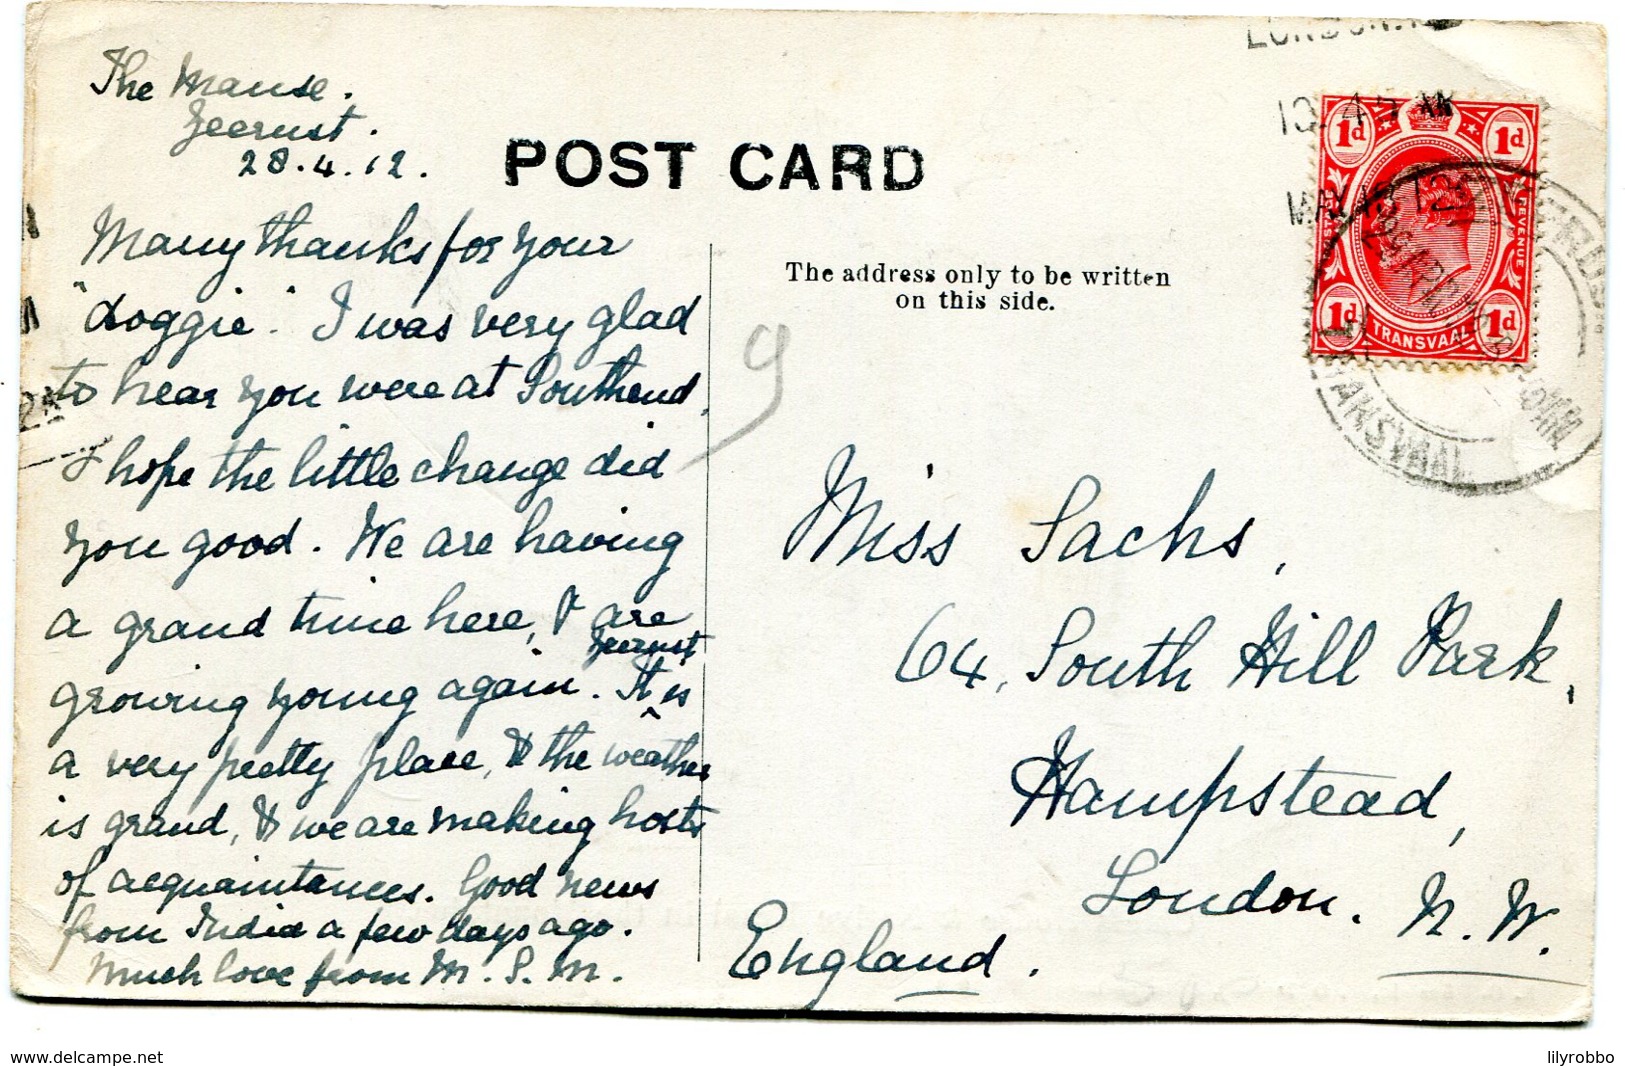 The Manse.
Zeerust.
28.4.12.
POST CARD
Many thanks for your
"doggie". I was very glad
to hear you were at Southend,
I hope the little change did
you good. We are having
a grand time here, & are
Zeerust
growing young again. It ^ is
a very pretty place, & the weather
is grand, & we are making hosts
of acquaintances. Good news
from India a few days ago.
Much love from M. S. M.
The address only to be written
on this side.
9
Miss Sachs,
64, South Hill Park,
Hampstead,
London. N. W.
England.
LONDON.
10.45 AM
MAY 18 12
1d 1d
REVENUE
1d TRANSVAAL 1d
TRANSVAAL
lilyrobbo
myfavorite_placeholder